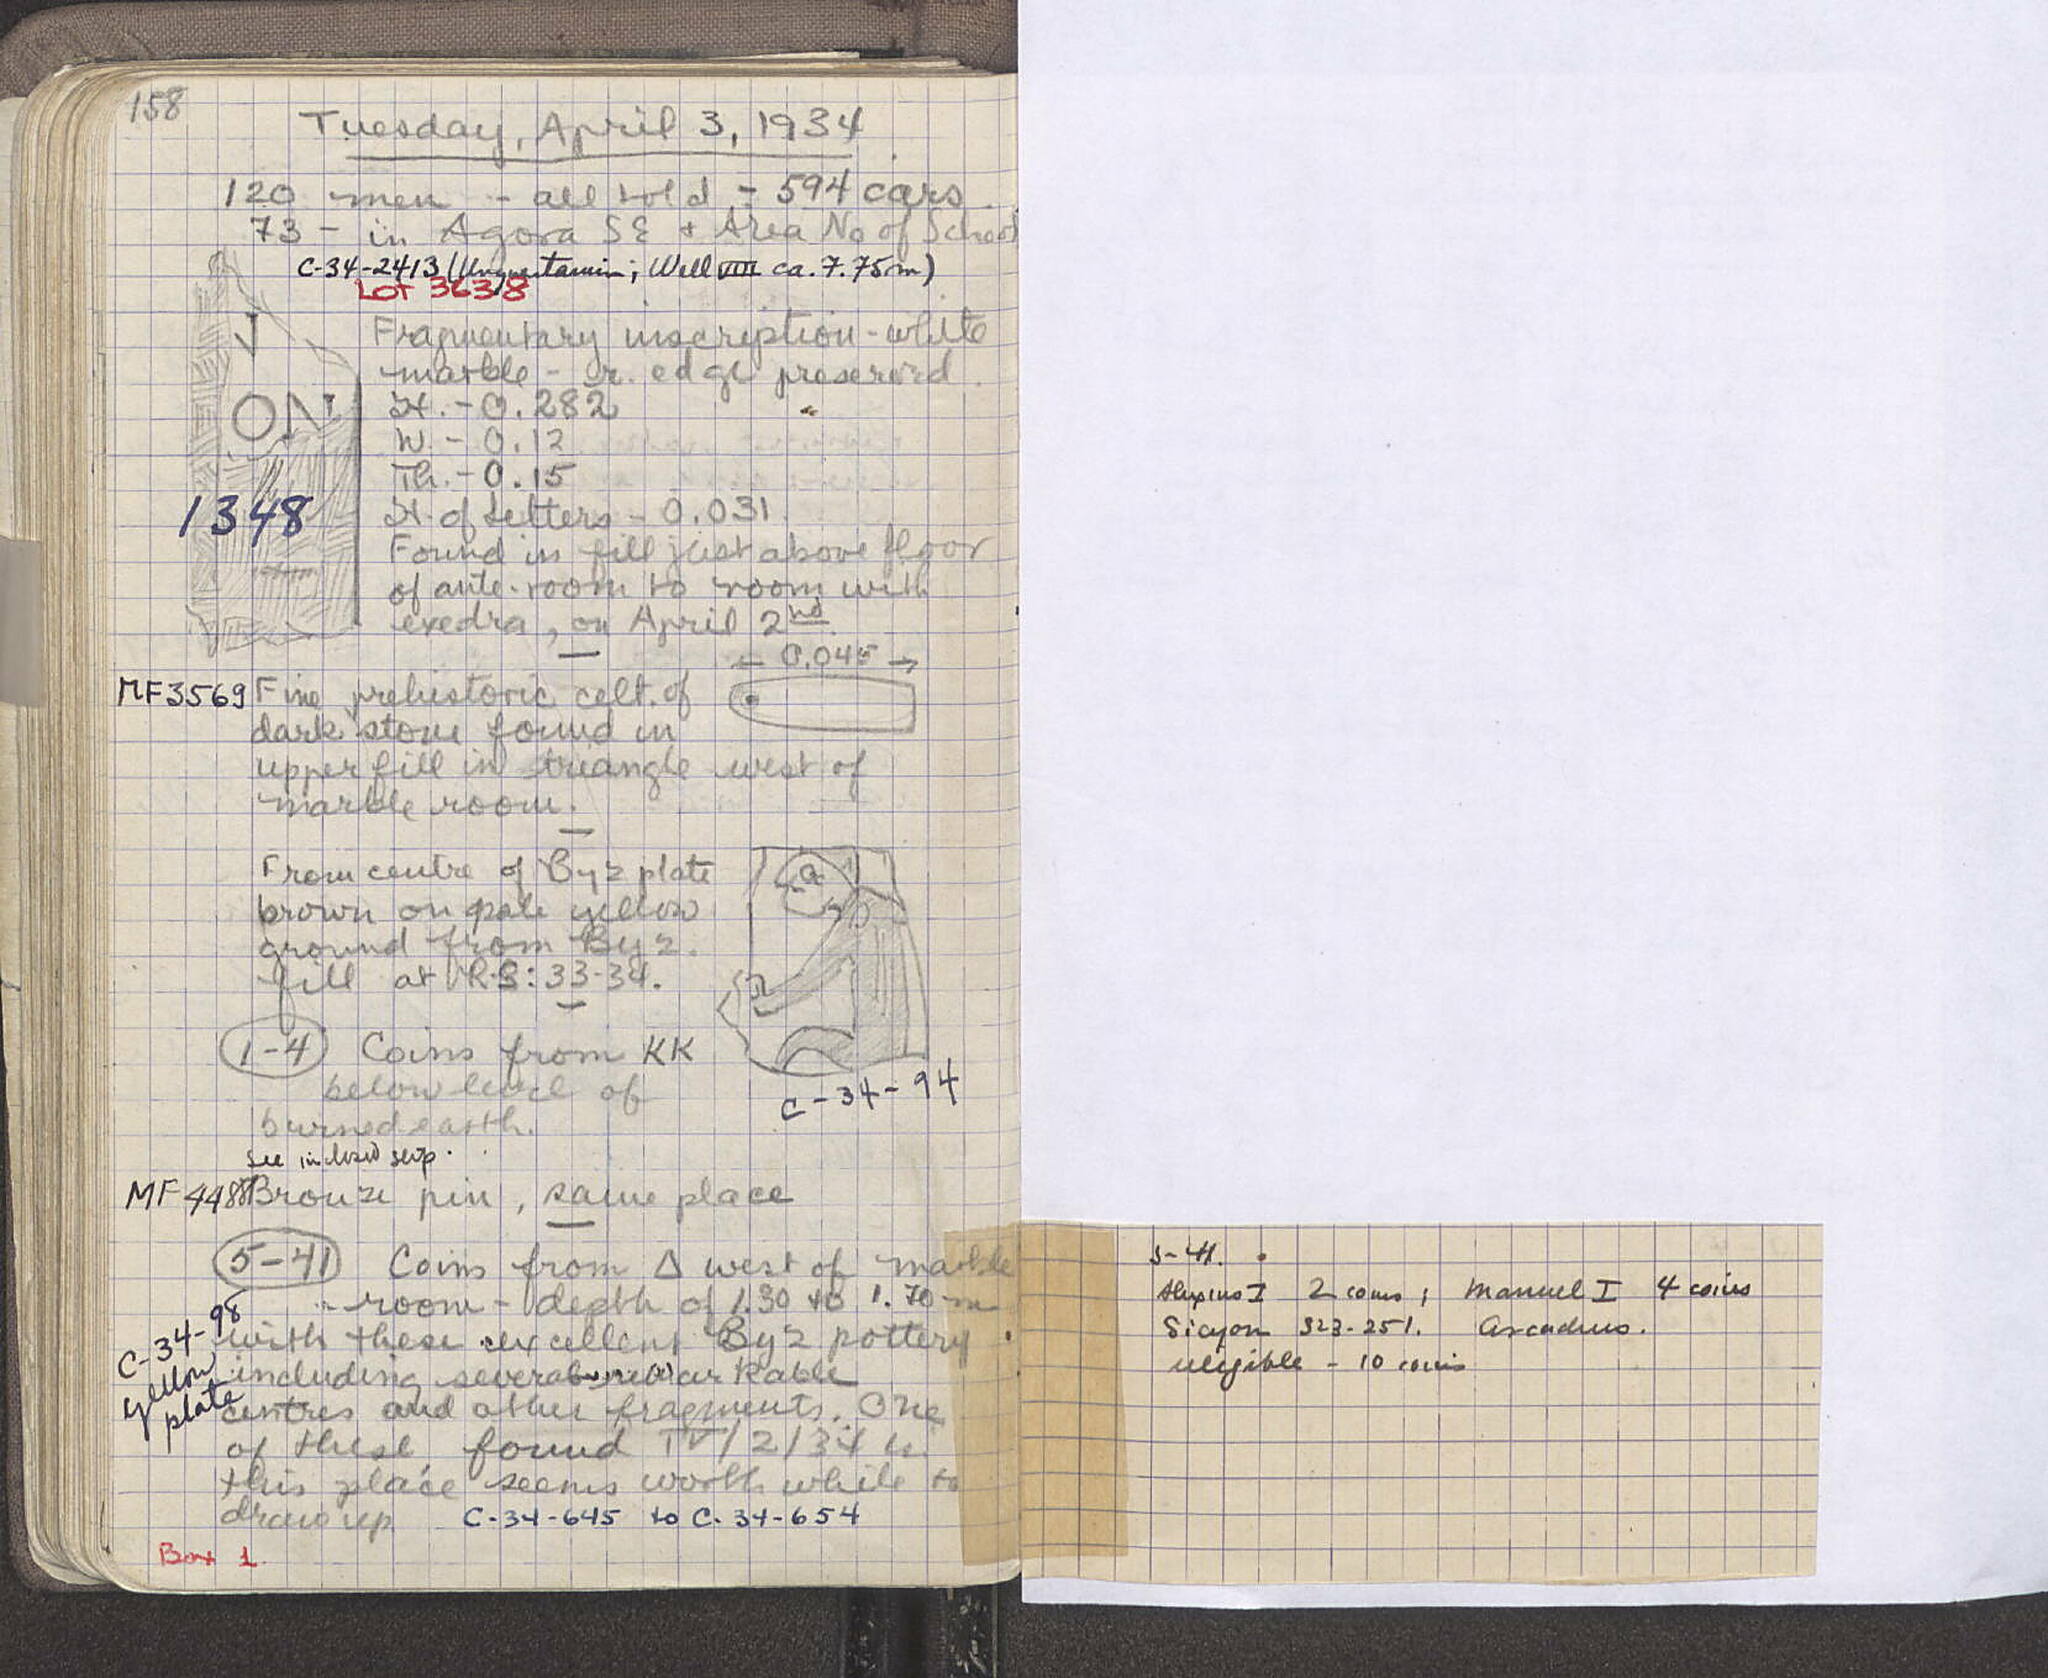 158
Tuesday, April 3, 1934
120 men - all told - 594 cars.
73 - in Agora SE + Area No of School
C-34-2413 (Unguentarium; Well VIII ca. 7.75m)
LOT 3638
Fragmentary inscription - white
marble - r. edge preserved.
H. - 0.282
W. - 0.12
Th. - 0.15
H. of letters - 0.031
Found in fill just above floor
of ante-room to room with
exedra, on April 2nd
ON
1348
0.045
MF3569 Fine prehistoric celt of
dark stone found in
upper fill in triangle west of
marble room.
From centre of Byz plate
brown on pale yellow
ground from Byz.
fill at R-S: 33-34.
C-34-94
1-4 Coins from KK
below level of
burned earth.
See inclosed slip.
MF 4488 Bronze pin, same place
5-41 Coins from Δ west of marble
room - depth of 1.30 to 1.70 m
with these excellent Byz pottery
including several remarkable
centres and other fragments. One
of these, found IV/2/34 in
this place seems worth while to
draw up C-34-645 to C-34-654
C-34-98
yellow
plate
Box 1
5-41.
Alexius I 2 coins; Manuel I 4 coins
Sicyon 323-251. Arcadius.
illegible - 10 coins